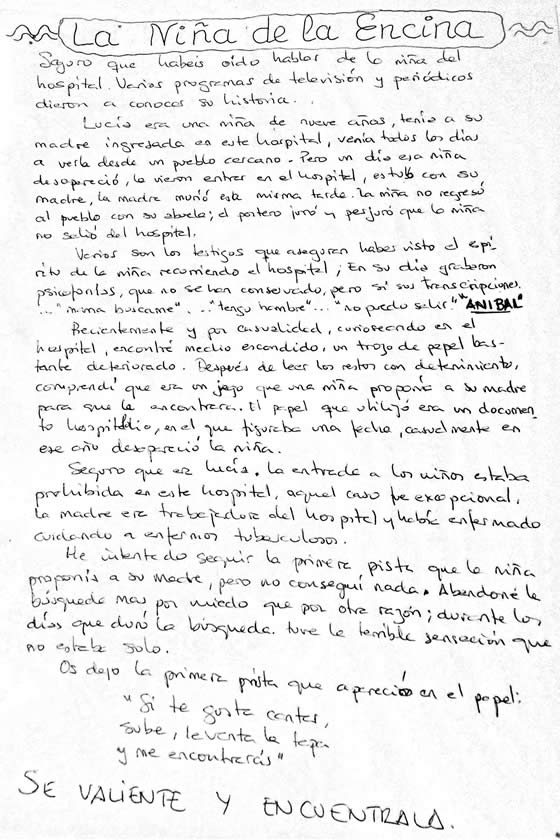 La Niña de la Encina
Seguro que habeis oido hablar de la niña del
hospital. Varios programas de televisión y periódicos
dieron a conocer su historia...
Lucía era una niña de nueve años, tenía a su
madre ingresada en este hospital, venía todos los días
a verla desde un pueblo cercano. Pero un día esa niña
desapareció, la vieron entrar en el hospital, estubo con su
madre, la madre murió esta misma tarde. La niña no regresó
al pueblo con su abuela; el portero juró y perjuró que la niña
no salió del hospital.
Varios son los testigos que aseguran haber visto el espi-
ritu de la niña recorriendo el hospital; En su dia grabaron
psicofonías, que no se han conservado, pero si sus transcripciones.
..."mama buscame"..."tengo hambre"..."no puedo salir" "ANIBAL"
Recientemente y por casualidad, curioseando en el
hospital, encontré medio escondido, un trozo de papel bas-
tante deteriorado. Después de leer los restos con detenimiento,
comprendí que era un juego que una niña proponía a su madre
para que la encontrara. El papel que utilizó era un documen
to hospitalio, en el que figuraba una fecha, casualmente en
ese año desapareció la niña.
Seguro que era lucía. La entrada a los niños estaba
prohibida en este hospital, aquel caso fue excepcional,
la madre era trabajadora del hospital y había enfermado
cuidando a enfermos tuberculosos.
He intentado seguir la primera pista que la niña
proponía a su madre, pero no conseguí nada. Abandoné la
búsqueda mas por miedo que por otra razón; durante los
días que duró la búsqueda. tuve la terrible sensación que
no estaba solo.
Os dejo la primera pista que apareció en el papel:
"Si te gusta contar,
sube, levanta la tapa
y me encontrarás"
SE VALIENTE Y ENCUENTRALA.